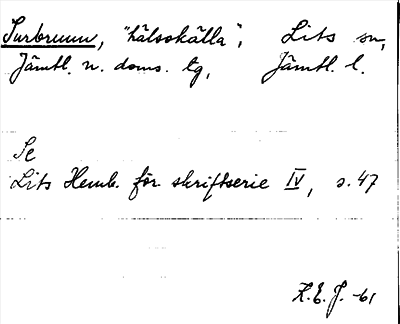 Surbrunn, "hälsokälla"; Lits sn,
Jämtl. n. doms. tg, Jämtl. l.
Se
Lits Hemb. för. skriftserie IV, s. 47
K.E.J. -61